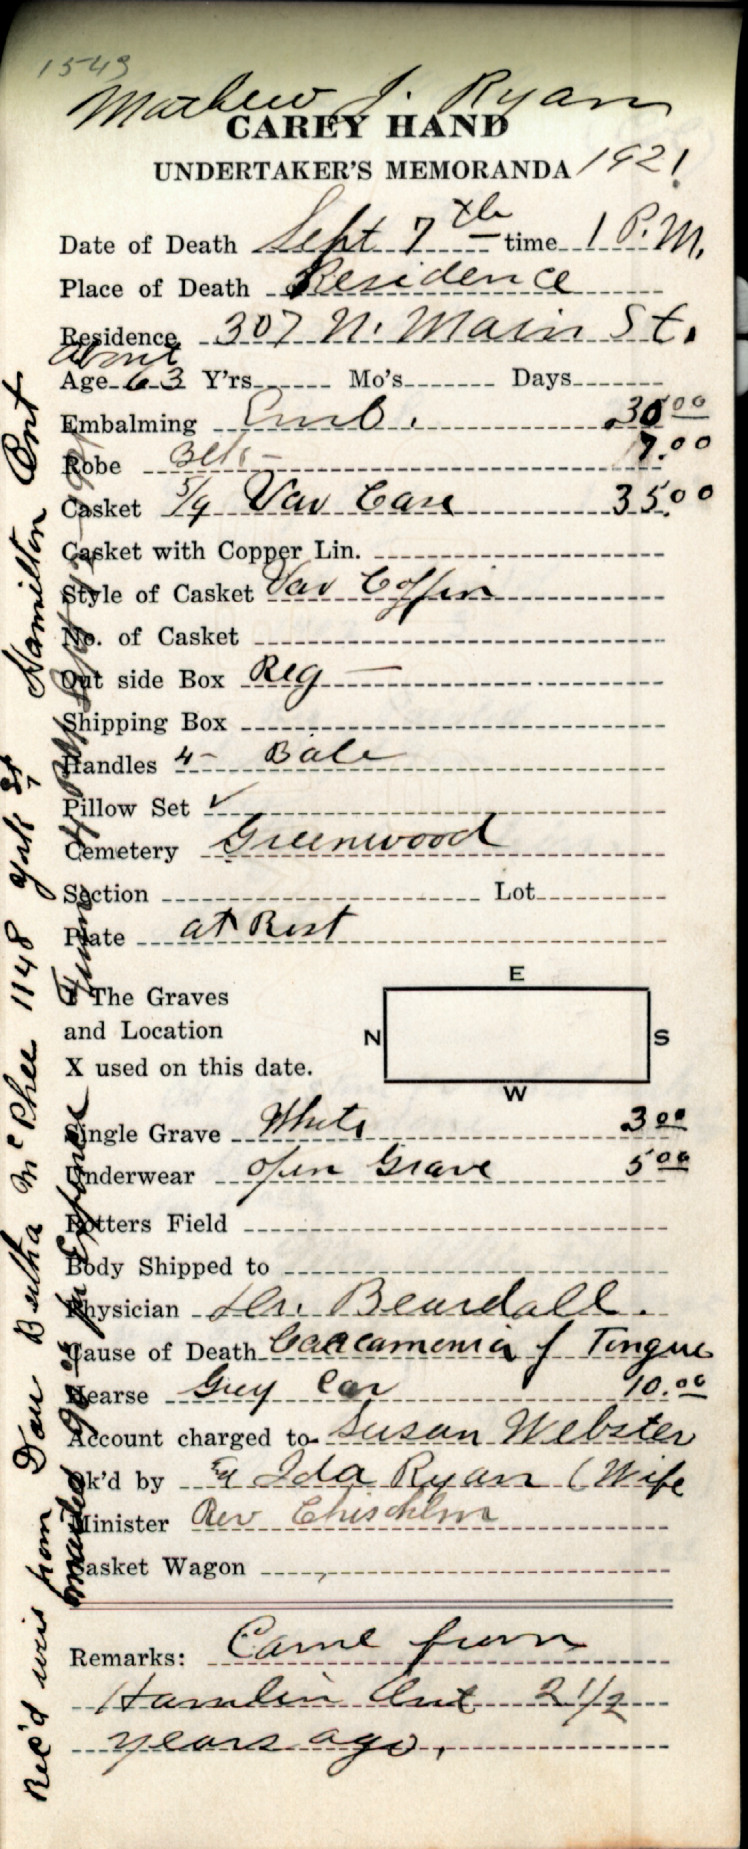 1543
Mathew J. Ryan
CAREY HAND
UNDERTAKER'S MEMORANDA 1921
Date of Death Sept 7th time 1 P.M.
Place of Death Residence
Residence 307 N. Main St.
about
Age 63 Y'rs Mo's Days
Embalming Emb. 30.00
Robe Blk 7.00
Casket 5/9 Var Case 35.00
Casket with Copper Lin.
Style of Casket Var Coffin
No. of Casket
Out side Box Reg
Shipping Box
Handles 4- Bale
Pillow Set ✓
Cemetery Greenwood
Section Lot
Plate at Rest
The Graves
and Location
X used on this date.
E
N S
W
Single Grave White 3.00
Underwear open Grave 5.00
Potters Field
Body Shipped to
Physician Dr. Beardall.
Cause of Death Caacamonia of Tongue
Hearse Grey Car 10.00
Account charged to Susan Webster
Ok'd by Ida Ryan (Wife
Minister Rev Chischlm
Casket Wagon
Remarks: Came from
Hamlin Ont 2 1/2
years ago.
Rec'd wire from Dau Bertha McPhee 1148 York St Hamilton Ont
90.00 for Expense